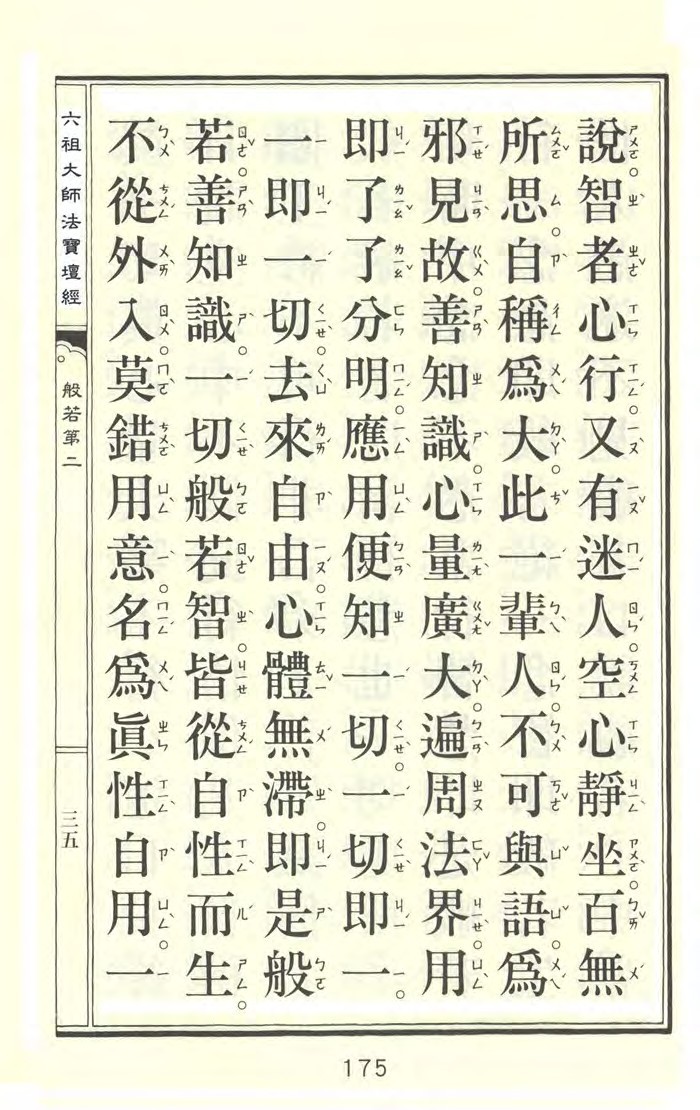 說智者心行又有迷人空心靜坐百無
所思自稱爲大此一輩人不可與語爲
邪見故善知識心量廣大遍周法界用
即了了分明應用便知一切一切即一
一即一切去來自由心體無滯即是般
若善知識一切般若智皆從自性而生
不從外入莫錯用意名爲眞性自用一
六祖大師法寶壇經
般若第二
三五
175